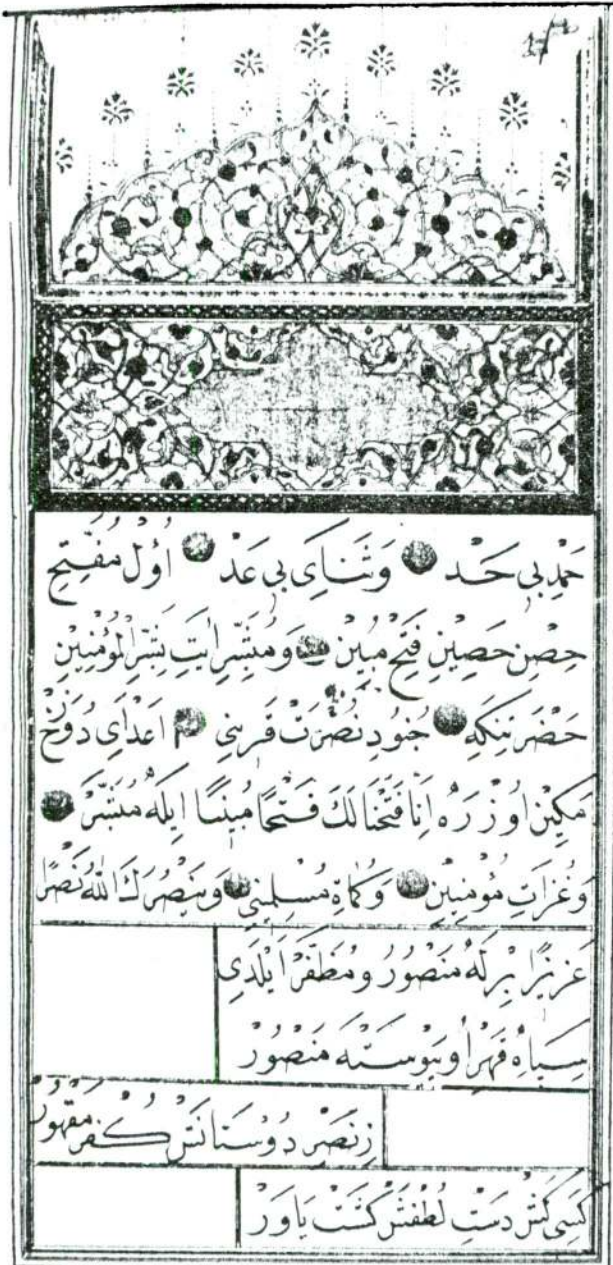 حَمْدِ بِى حَد وَثَنَاىِ بِى عَدْ اُوْل مُفَتِّحِ
حِصْنِ حَصِينِ فَتْحِ مُبِينْ وَمُبَشِّرِ اٰيَتِ بَشِّرِ الْمُؤْمِنِينِ
حَضْرَتِنَكَهِ جُنُودِ نُصْرَتْ قَرِينِى اَعْدَاىِ دُوزَخْ
مَكِينْ اُوزَرَه اِنَّا فَتَحْنَا لَكَ فَتْحًا مُبِينًا اِيلَه مُبَشَّرْ
وَغُزَاتِ مُؤْمِنِينْ وَكُمَاةِ مُسْلِمِينِى وَيَنْصُرَكَ اللّٰهُ نَصْرًا
عَزِيزًا بِرْلَه مَنْصُورُ و مُظَفَّرْ اَيْلَدِى
سِپَاهِ قَهْرِ اُو پَيْوَسْتَه مَنْصُورْ
زِنَصْرِ دُوسْتَانَشْ كُفْرِ مَقْهُورْ
كَسِى كَشْ دَسْتِ لُطْفَشْ كَشْتْ يَاوَرْ